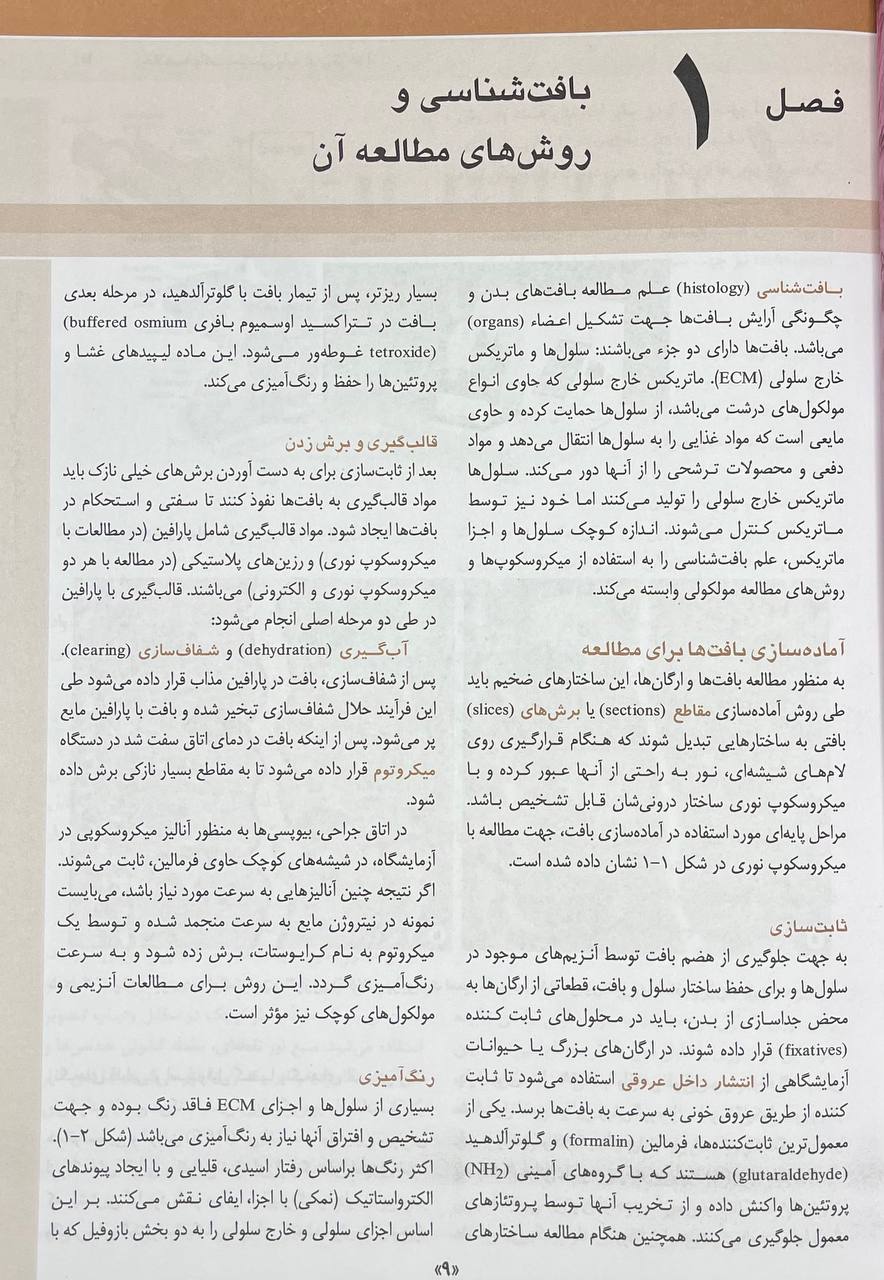 فصل ۱
بافت‌شناسی و
روش‌های مطالعه آن
بافت‌شناسی (histology) علم مطالعه بافت‌های بدن و
چگونگی آرایش بافت‌ها جهت تشکیل اعضاء (organs)
می‌باشد. بافت‌ها دارای دو جزء می‌باشند: سلول‌ها و ماتریکس
خارج سلولی (ECM). ماتریکس خارج سلولی که حاوی انواع
مولکول‌های درشت می‌باشد، از سلول‌ها حمایت کرده و حاوی
مایعی است که مواد غذایی را به سلول‌ها انتقال می‌دهد و مواد
دفعی و محصولات ترشحی را از آنها دور می‌کند. سلول‌ها
ماتریکس خارج سلولی را تولید می‌کنند اما خود نیز توسط
ماتریکس کنترل می‌شوند. اندازه کوچک سلول‌ها و اجزا
ماتریکس، علم بافت‌شناسی را به استفاده از میکروسکوپ‌ها و
روش‌های مطالعه مولکولی وابسته می‌کند.
آماده‌سازی بافت‌ها برای مطالعه
به منظور مطالعه بافت‌ها و ارگان‌ها، این ساختارهای ضخیم باید
طی روش آماده‌سازی مقاطع (sections) یا برش‌های (slices)
بافتی به ساختارهایی تبدیل شوند که هنگام قرارگیری روی
لام‌های شیشه‌ای، نور به راحتی از آنها عبور کرده و با
میکروسکوپ نوری ساختار درونی‌شان قابل تشخیص باشد.
مراحل پایه‌ای مورد استفاده در آماده‌سازی بافت، جهت مطالعه با
میکروسکوپ نوری در شکل ۱-۱ نشان داده شده است.
ثابت‌سازی
به جهت جلوگیری از هضم بافت توسط آنزیم‌های موجود در
سلول‌ها و برای حفظ ساختار سلول و بافت، قطعاتی از ارگان‌ها به
محض جداسازی از بدن، باید در محلول‌های ثابت کننده
(fixatives) قرار داده شوند. در ارگان‌های بزرگ یا حیوانات
آزمایشگاهی از انتشار داخل عروقی استفاده می‌شود تا ثابت
کننده از طریق عروق خونی به سرعت به بافت‌ها برسد. یکی از
معمول‌ترین ثابت‌کننده‌ها، فرمالین (formalin) و گلوترآلدهید
(glutaraldehyde) هستند که با گروه‌های آمینی (NH2)
پروتئین‌ها واکنش داده و از تخریب آنها توسط پروتئازهای
معمول جلوگیری می‌کنند. همچنین هنگام مطالعه ساختارهای
بسیار ریزتر، پس از تیمار بافت با گلوترآلدهید، در مرحله بعدی
بافت در تتراکسید اوسمیوم بافری (buffered osmium
tetroxide) غوطه‌ور می‌شود. این ماده لیپیدهای غشا و
پروتئین‌ها را حفظ و رنگ‌آمیزی می‌کند.
قالب‌گیری و برش زدن
بعد از ثابت‌سازی برای به دست آوردن برش‌های خیلی نازک باید
مواد قالب‌گیری به بافت‌ها نفوذ کنند تا سفتی و استحکام در
بافت‌ها ایجاد شود. مواد قالب‌گیری شامل پارافین (در مطالعات با
میکروسکوپ نوری) و رزین‌های پلاستیکی (در مطالعه با هر دو
میکروسکوپ نوری و الکترونی) می‌باشند. قالب‌گیری با پارافین
در طی دو مرحله اصلی انجام می‌شود:
آب‌گیری (dehydration) و شفاف‌سازی (clearing).
پس از شفاف‌سازی، بافت در پارافین مذاب قرار داده می‌شود طی
این فرآیند حلال شفاف‌سازی تبخیر شده و بافت با پارافین مایع
پر می‌شود. پس از اینکه بافت در دمای اتاق سفت شد در دستگاه
میکروتوم قرار داده می‌شود تا به مقاطع بسیار نازکی برش داده
شود.
در اتاق جراحی، بیوپسی‌ها به منظور آنالیز میکروسکوپی در
آزمایشگاه، در شیشه‌های کوچک حاوی فرمالین، ثابت می‌شوند.
اگر نتیجه چنین آنالیزهایی به سرعت مورد نیاز باشد، می‌بایست
نمونه در نیتروژن مایع به سرعت منجمد شده و توسط یک
میکروتوم به نام کرایوستات، برش زده شود و به سرعت
رنگ‌آمیزی گردد. این روش برای مطالعات آنزیمی و
مولکول‌های کوچک نیز مؤثر است.
رنگ‌آمیزی
بسیاری از سلول‌ها و اجزای ECM فاقد رنگ بوده و جهت
تشخیص و افتراق آنها نیاز به رنگ‌آمیزی می‌باشد (شکل ۲-۱).
اکثر رنگ‌ها براساس رفتار اسیدی، قلیایی و با ایجاد پیوندهای
الکترواستاتیک (نمکی) با اجزا، ایفای نقش می‌کنند. بر این
اساس اجزای سلولی و خارج سلولی را به دو بخش بازوفیل که با
«۹»